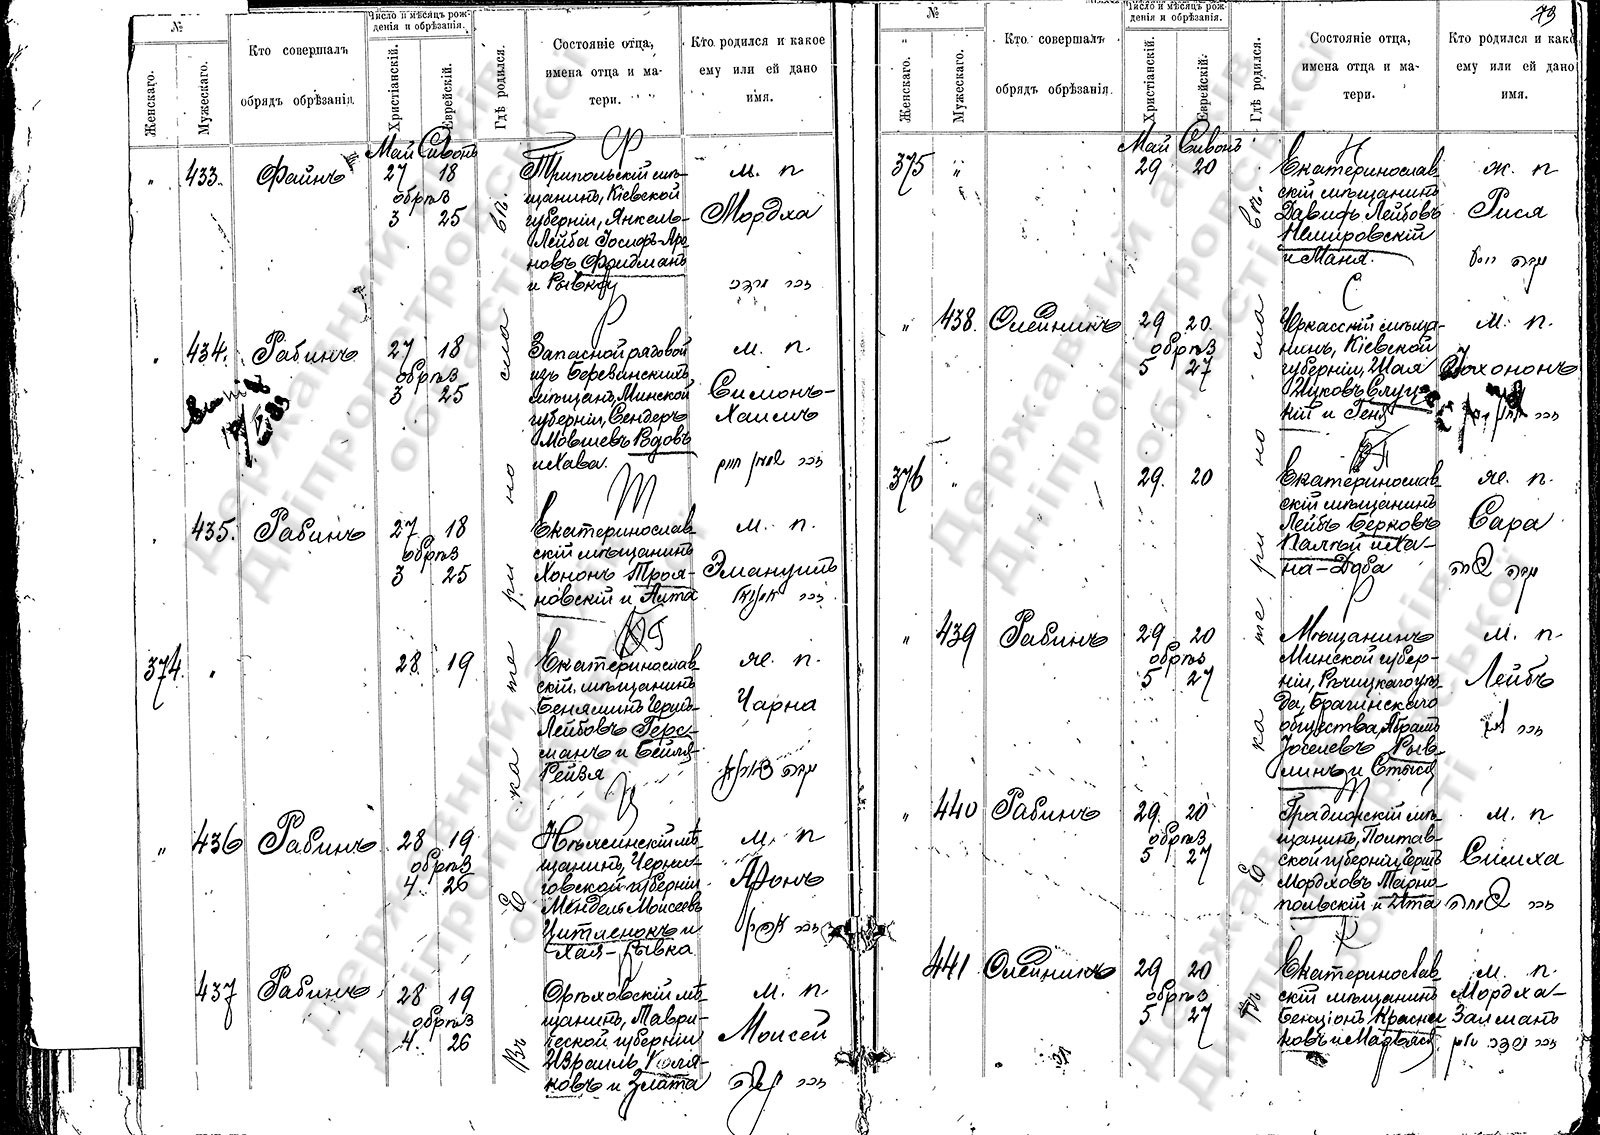 №
Женскаго.
Мужескаго.
Кто совершалъ
обрядъ обрѣзанія.
Число и мѣсяцъ рож-
денія и обрѣзанія.
Христіанскій.
Еврейскій.
Гдѣ родился.
Состояніе отца,
имена отца и ма-
тери.
Кто родился и какое
ему или ей дано
имя.
Май Сивонъ
Въ Екатеринославѣ
Ф
" 433. Файнъ 27 18
обрѣз
3 25
Трипольскій мѣ-
щанинъ, Кіевской
губерніи, Янкель-
Лейба Іосифъ-Аро
новъ Фридманъ
и Рывка
м. п
Мордха
זכר מרדכי
Р
" 434. Рабинъ 27 18
обрѣз
3 25
Запасной рядовой
изъ Березинскихъ
мѣщанъ, Минской
губерніи, Сендеръ
Мовшевъ Вдовъ
и Хава.
м. п.
Симонъ-
Хаимъ
זכר
Т
435. Рабинъ 27 18
обрѣз
3 25
Екатеринослав-
скій мѣщанинъ
Хононъ Троя-
новскій и Алта
м. п.
Эмануилъ
זכר
Г
374. " 28 19
Екатеринослав-
скій мѣщанинъ
Беняминъ Герш-
Лейбовъ Герс-
манъ и Бейля-
Рейзя
же. п.
Чарна
Ц
" 436 Рабинъ 28 19
обрѣз
4 26
Нѣжинскій мѣ-
щанинъ, Черни-
говской губерніи
Мендель Моисеевъ
Цитленокъ и
Хая-Рывка
м. п
Аронъ
זכר
437 Рабинъ 28 19
обрѣз
4. 26
Орѣховскій мѣ-
щанинъ, Таври-
ческой губерніи
Израиль
и Злата
м. п.
Моисей
זכר משה
73
№
Женскаго.
Мужескаго.
Кто совершалъ
обрядъ обрѣзанія.
Число и мѣсяцъ рож-
денія и обрѣзанія.
Христіанскій.
Еврейскій.
Гдѣ родился.
Состояніе отца,
имена отца и ма-
тери.
Кто родился и како
ему или ей дано
имя.
Май Сивонъ
Въ Екатеринославѣ
Н
375 " 29 20
Екатеринослав-
скій мѣщанинъ
Давидъ Лейбовъ
Немировскій
и Маня.
ж. п
Рися
С
" 438. Олейникъ 29 20.
обрѣз
5 27
Черкасскій мѣща-
нинъ, Кіевской
губерніи, Шая
Ицковъ Слуц-
кій и Геня
м. п.
זכר
П
376 " 29. 20
Екатеринослав-
скій мѣщанинъ
Лейбъ Берковъ
Палѣй и Ха-
на-Доба
же. п.
Сара
שרה
Р
" 439 Рабинъ 29 20
обрѣз
5 27
Мѣщанинъ
Минской губер-
ніи, Рѣчицкаго уѣз-
да, Брагинскаго
общества, Абрамъ
Іоселевъ Рыв-
линъ и Стыся
м. п.
Лейбъ
זכר
Т
" 440 Рабинъ 29. 20
обрѣз
5 27
Градижскій мѣ-
щанинъ, Полтав-
ской губерніи, Гершъ
Мордховъ Тарно-
польскій и Ита
м. п.
Симха
זכר שמחה
К
441 Олейникъ 29 20
обрѣз
5 27
Екатеринослав-
скій мѣщанинъ
Бенціонъ Красни
ковъ и Марьяся
м. п.
Мордха-
Залманъ
זכר מרדכי זלמן
Державний архів
Дніпропетровської області